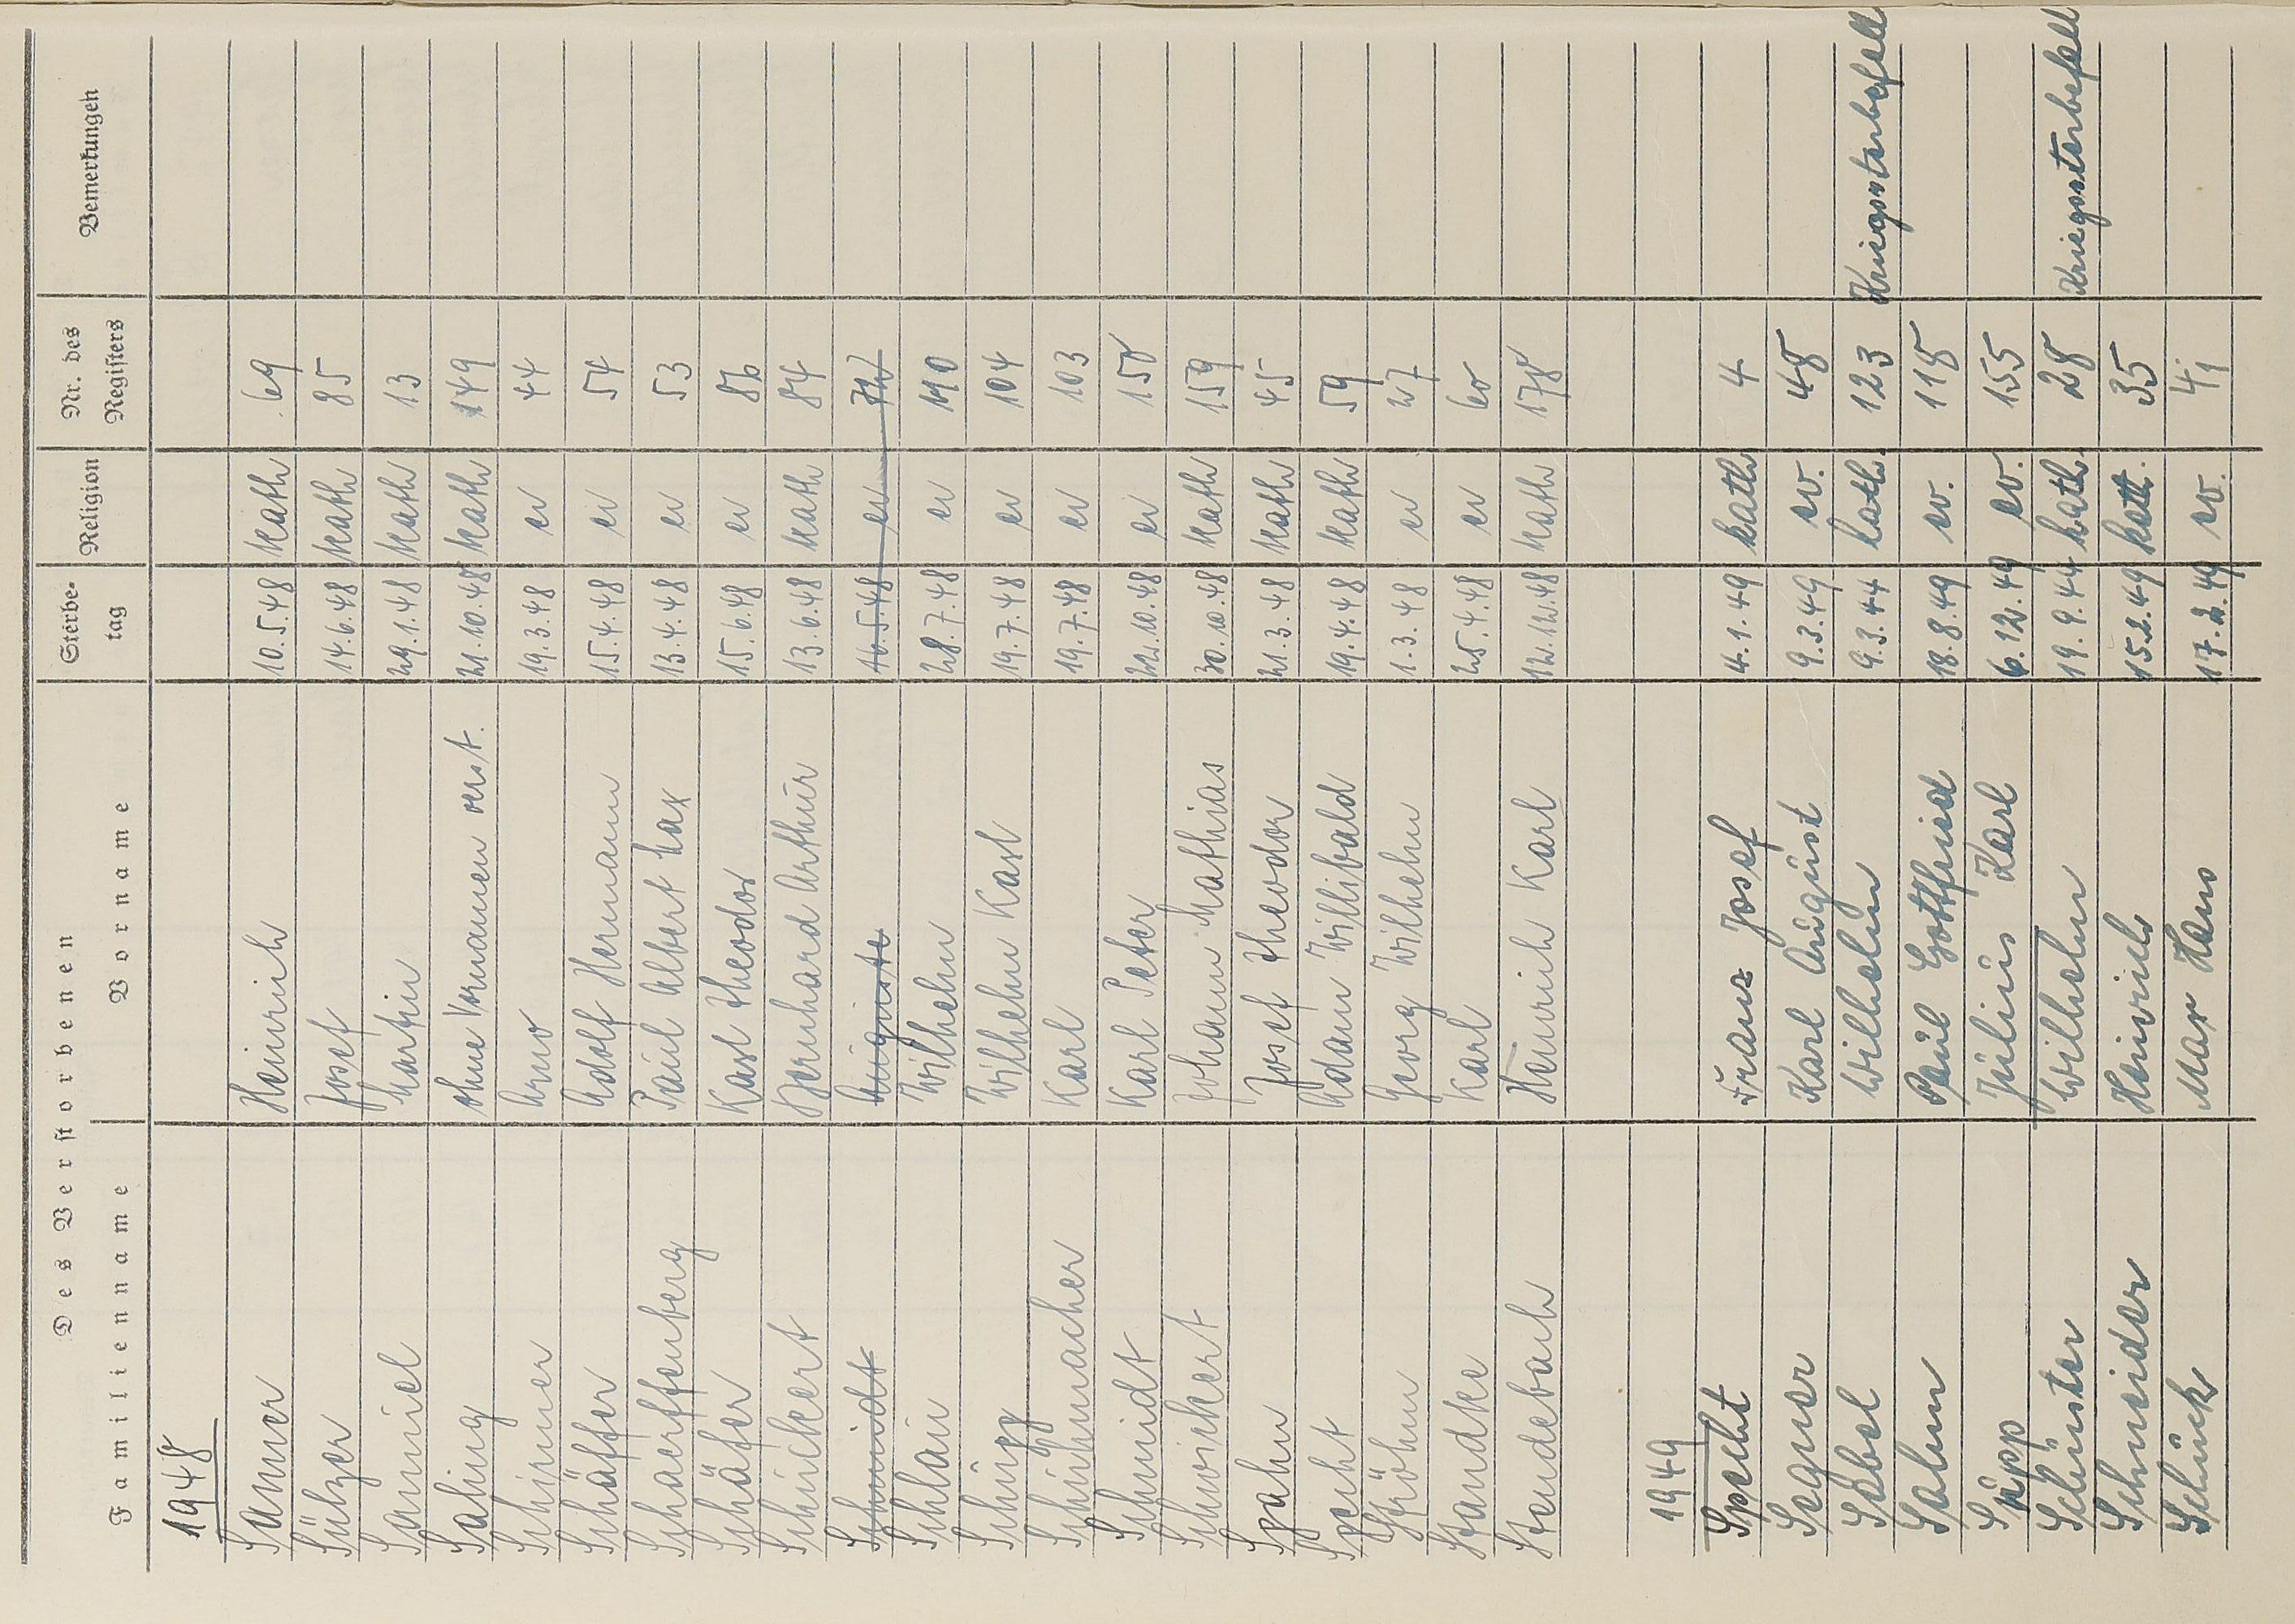 Des Verstorbenen
Familienname Vorname Sterbetag Religion Nr. des Registers Bemerkungen
1948
Sanner Heinrich 10.5.48 kath 69
Sülzer Josef 14.6.48 kath 85
Samuel Martin 29.1.48 kath 13
Sahing ohne Vornamen verst. 21.10.48 kath 149
Schirmer Arno 19.3.48 ev 44
Schäffer Adolf Hermann 15.4.48 ev 54
Schaerffenberg Paul Albert Max 13.4.48 ev 53
Schäfer Karl Theodor 15.6.48 ev 86
Schückert Bernhard Arthur 13.6.48 kath 84
Schmidt Auguste 16.5.48 ev 72
Schlau Wilhelm 28.7.48 ev 110
Schüpp Wilhelm Karl 19.7.48 ev 104
Schuhmacher Karl 19.7.48 ev 103
Schmidt Karl Peter 22.10.48 ev 150
Schwickert Johann Mathias 30.10.48 kath 159
Spahn Josef Theodor 21.3.48 kath 45
Specht Adam Willibald 19.4.48 kath 59
Ströhm Georg Wilhelm 1.3.48 ev 27
Standke Karl 25.4.48 ev 60
Stendebach Heinrich Karl 12.12.48 kath 178
1949
Specht Franz Josef 4.1.49 kath 4
Segner Karl August 9.3.49 ev. 48
Sabel Wilhelm 9.3.44 kath. 123 Kriegssterbefall
Sahm Paul Gottfried 18.8.49 ev. 118
Säpp Julius Karl 6.12.49 ev. 155
Schuster Wilhelm 19.9.44 kath. 28 Kriegssterbefall
Schneider Heinrich 15.2.49 kath. 35
Schück Max Hans 17.2.49 ev. 41